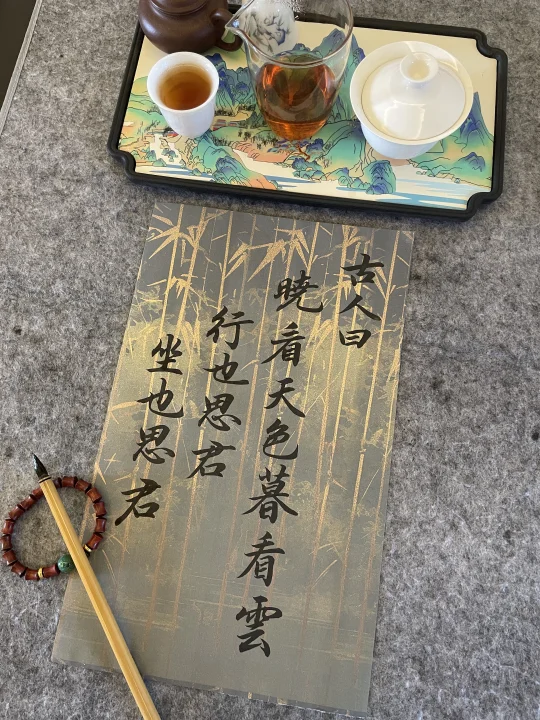 古人曰
曉看天色暮看雲
行也思君
坐也思君